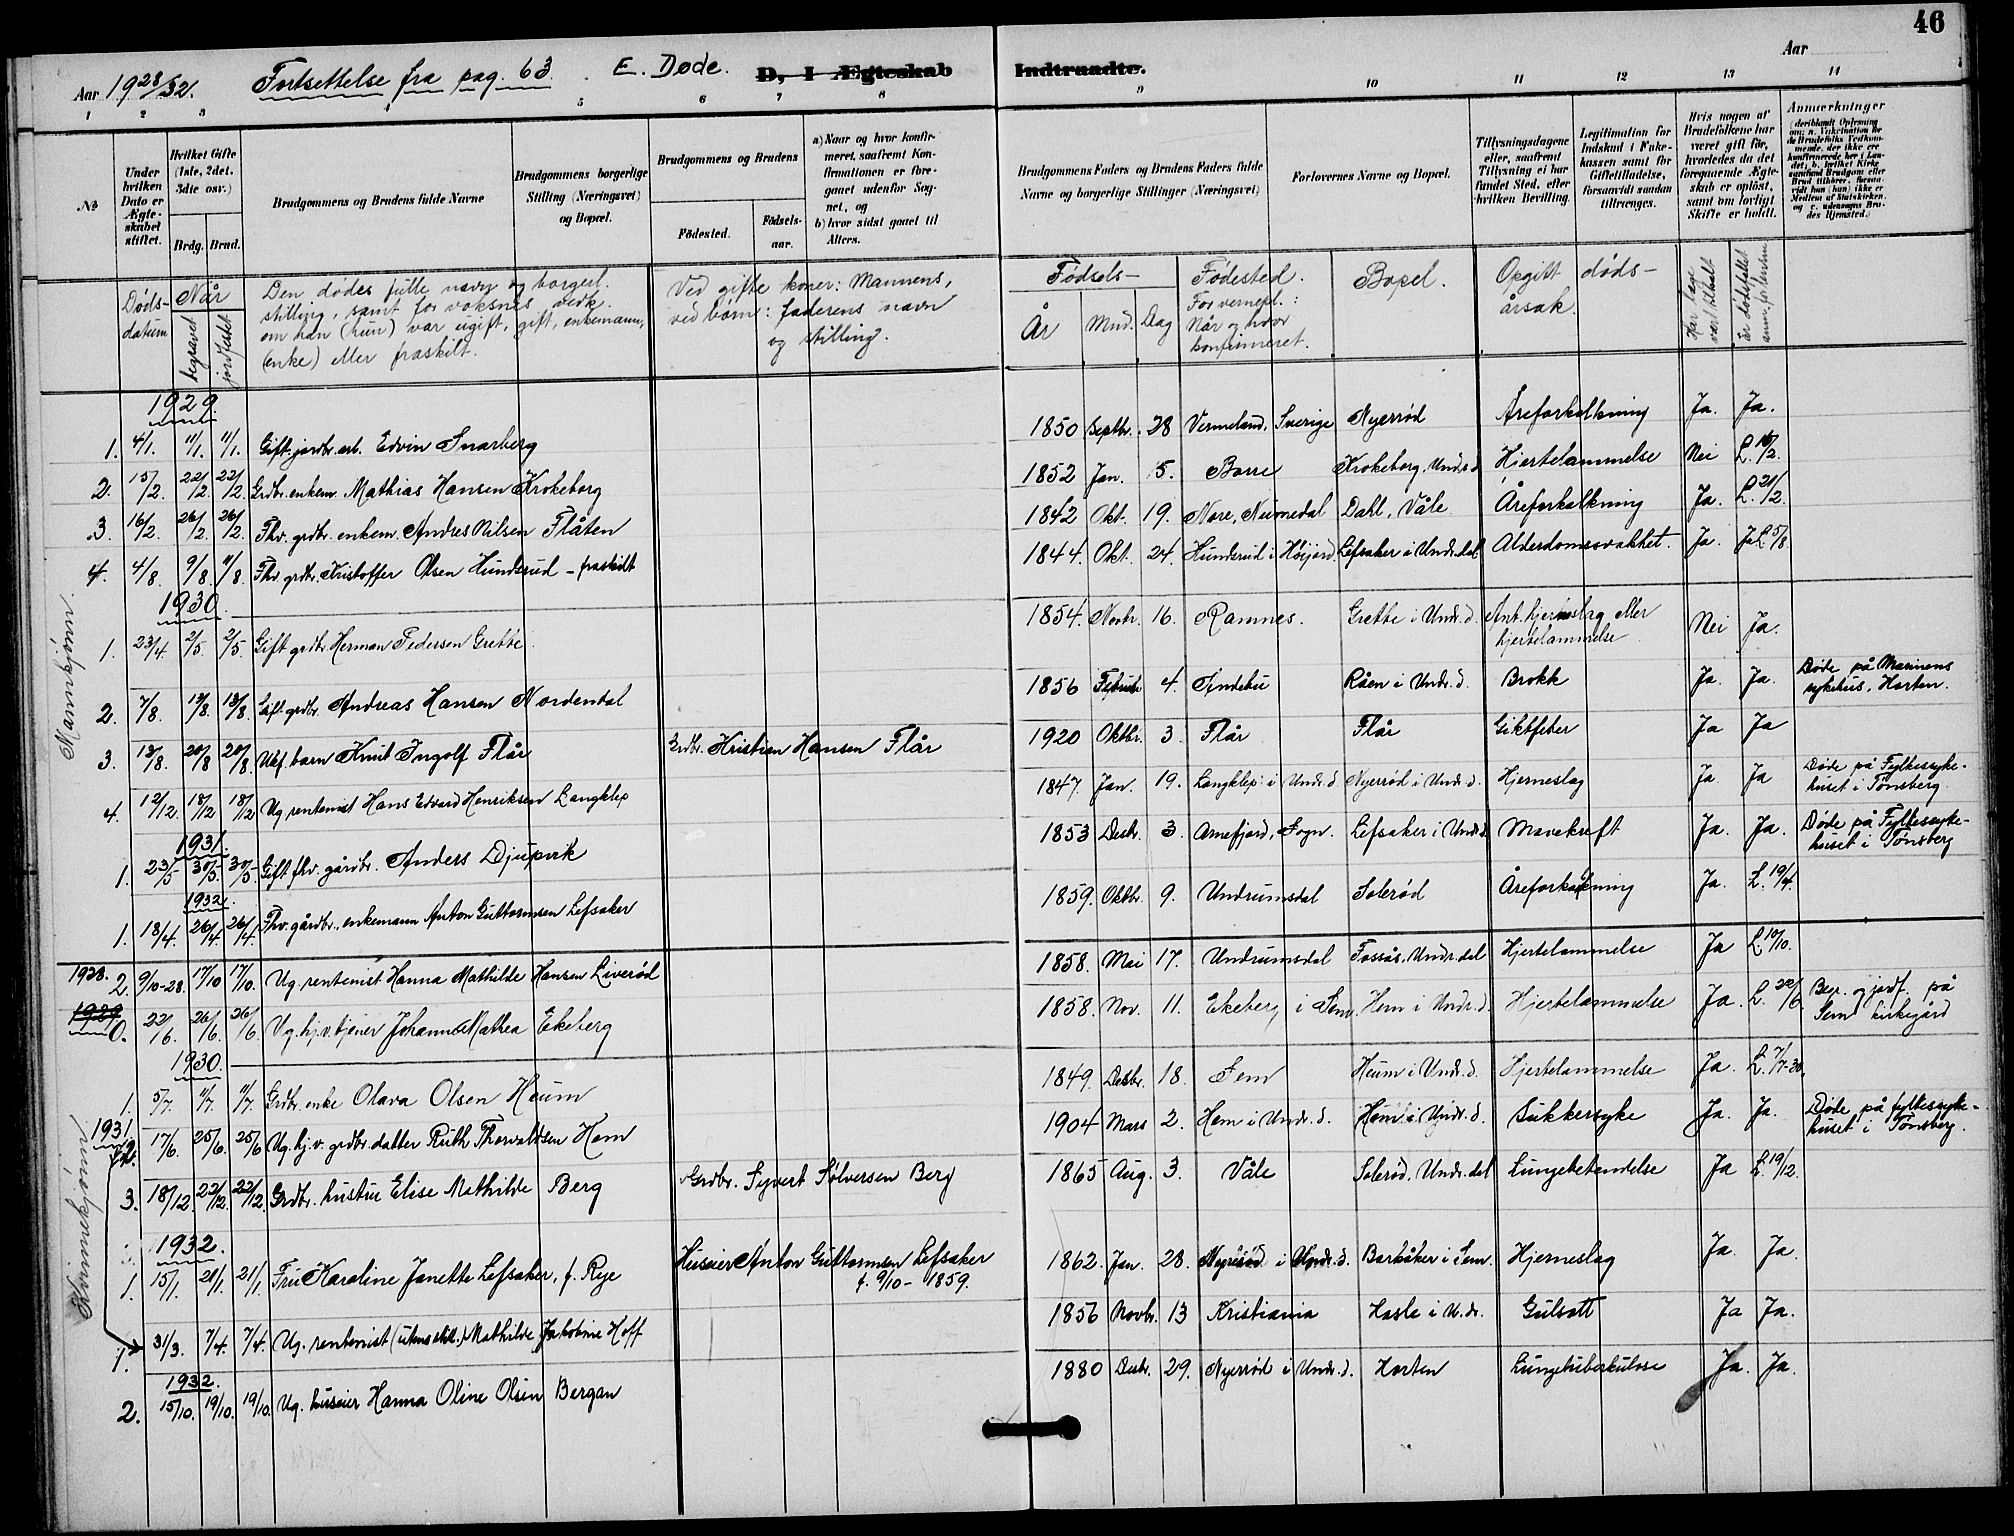 46
Aar 1928/32. Fortsettelse fra pag. 63. E. Døde. D, I Ægteskab Indtraadte. Aar
1 2 3 4 5 6 7 8 9 10 11 12 13 14
No
Under hvilken Dato er Ægteskabet stiftet.
Hvilket Gifte (1ste, 2det, 3die osv.)
Brdg. Brud.
Brudgommens og Brudens fulde Navne
Brudgommens borgerlige Stilling (Næringsvei) og Bopæl.
Brudgommens og Brudens
Fødested. Fødselsaar.
a) Naar og hvor konfirmeret, saafremt Konfirmationen er foregaaet udenfor Sognet, og
b) hvor sidst gaaet til Alters.
Brudgommens Faders og Brudens Faders fulde Navne og borgerlige Stillinger (Næringsvei)
Forlovernes Navne og Bopæl.
Tillysningsdagene eller, saafremt Tillysning ei har fundet Sted, efter hvilken Bevilling.
Legitimation for Indskud i Enkekassen samt for Giftetilladelse, forsaavidt saadan tiltrænges.
Hvis nogen af Brudefolkene har været gift før, hvorledes da det foregaaende Ægteskab er opløst, samt om lovligt Skifte er holdt.
Anmærkninger (deriblandt Oplysning om: a. Vakcination for de Brudefolks Vedkommende, der ikke ere konfirmerede her i Landet, b. hvilket Kirkesamfund Brudgom eller Brud tilhører, forsaavidt han (hun) ikke er Medlem af Statskirken, og c. udensogns Brudes Hjemsted.)
Dødsdatum
Når
begravet jordfestet
Den dødes fulle navn og borgerl. stilling, samt for voksnes vedk. om han (hun) var ugift, gift, enkemann, (enke) eller fraskilt.
Ved gifte koner: Mannens, ved barn: faderens navn og stilling.
Fødsels-
År Mnd. Dag
Fødested. For vernepl.: Når og hvor konfirmeret.
Bopel.
Opgitt dødsårsak.
Har læge vært tilkalt
Er dødsfallet anm. for lensm.
Mannkjønn.
1929.
1. 4/1. 11/1. 11/1. Gift jordbr.arb. Edvin Snarberg 1850 Septbr. 28 Vermeland, Sverige Nyerrød Åreforkalkning Ja. Ja.
2. 15/2. 22/2. 22/2. Grdbr. enkem. Mathias Hansen Krokeborg 1852 Jan. 5. Borre Krokeborg, Und.s.d Hjertelammelse Nei L. 16/2.
3 16/2. 26/2. 26/2. Fhv. grdbr. enkem. Andres Nilsen Flåten 1842 Okt. 19. Nore, Numedal Dahl, Våle Åreforkalkning Ja. L. 21/2.
4. 4/8. 9/8. 9/8. Fhv. grdbr. Kristoffer Olsen Hundsrud - fraskilt 1844. Okt. 24. Hundsrud i Høijord. Lefsaker i Undr.dal Alderdomssvakhet. Ja. Ja L 5/8.
1930.
1. 23/4. 2/5. 2/5. Gift grdbr. Herman Pedersen Grette. 1854. Novbr. 16. Ramnes. Grette i Undr.d. Ant. hjerneslag eller hjertelammelse Nei Ja.
2. 7/8. 13/8. 13/8. Gift grdbr. Andreas Hansen Nordendal 1856 Februar 4. Andebu Råen i Undr.d. Brokk Ja. Ja. Døde på Marinens sykehus, Horten.
3. 13/8. 20/8 20/8. Ukf. barn Knut Ingolf Flår Grdbr. Kristian Hansen Flår 1920 Oktbr. 3. Flår Flår Giktfeber Ja Ja
4. 12/12. 18/12 18/12 Ug rentenist Hans Edvard Henriksen Langklep 1847. Jan. 19. Langklep i Undr.d. Nyerrød i Undr.d. Hjerneslag Ja. Ja Døde på Fylkessykehuset i Tønsberg.
1931.
1. 23/5 30/5. 30/5. Gift fhv. gårdbr. Anders Djupvik 1853 Desbr. 3. Arnefjord, Sogn. Lefsaker i Undr.d Mavekreft Ja. Ja. Døde på Fylkessykehuset i Tønsberg
1932.
1. 18/4. 26/4. 26/4. Fhv. gårdbr., enkemann Anton Guttormsen Lefsaker 1859. Oktbr. 9. Undrumsdal Solerød Åreforkalkning Ja. L. 19/4.
Kvinnekjønn
1928. 2. 9/10-28. 17/10 17/10. Ug. rentenist Hanna Mathilde Hansen Liverød 1858. Mai 17. Undrumsdal Fossås, Undr.dal Hjertelammelse Ja L. 10/10.
1929 0. 22/6. 26/6. 26/6. Ug. hj.v. tjener Johanne Mathea Ekeberg 1858. Nov. 11. Ekeberg i Sem. Hem i Undr.d. Hjertelammelse Ja. L. 22/6. Begr. og jordf. på Sem kirkegård
1930.
1. 5/7. 11/7. 11/7. Grdbr. enke Olava Olsen Heum 1849. Desbr. 18. Sem Heum i Undr.d. Hjertelammelse Ja. L. 7/7-30.
1931
2. 17/6. 25/6. 25/6 Ug. hj.v. grdbr.datter Ruth Thorvaldsen Hem 1904 Mars 2. Hem i Undr.d. Hem i Undr.d. Sukkersyke Ja. Ja. Døde på fylkessykehuset i Tønsberg.
3. 18/12. 22/12. 22/12. Grdbr. hustru Elise Mathilde Berg Grdbr. Syvert Sølversen Berg 1865 Aug. 3. Våle Solerød, Undr.dal Lungebetendelse Ja L. 19/12.
1932.
1. 15/1. 21/1. 21/1. Fru Karoline Janette Lefsaker, f. Rye Huseier Anton Guttormsen Lefsaker f. 9/10 - 1859. 1862. Jan. 28. Nyerrød i Undr.d. Barkåker i Sem. Hjerneslag Ja. Ja.
1. 31/3. 7/4. 7/4. Ug. rentenist (utenstil.) Mathilde Jakobine Hoff 1856 Novbr. 13 Kristiania Hasle i U.dr. Gulsott Ja Ja.
1932.
2. 15/10. 19/10. 19/10. Ug. huseier Hanna Oline Olsen Bergan 1880 Desbr. 29. Nyerrød i Undr.d. Horten Lungetuberkulose Ja. Ja.